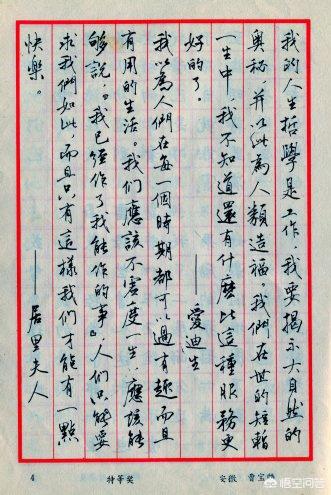 我的人生哲學是工作，我要揭示大自然的
奥秘，并以此為人類造福。我們在世的短暫
一生中，我不知道還有什麼比這種服務更
好的了。——愛迪生
我以為人們在每一個時期都可以過有趣而且
有用的生活。我们應該不虚度一生，應該能
够說，“我已經作了我能作的事”，人們只能要
求我們如此，而且只有這樣我们才能有一點
快樂。——居里夫人
4 特等奖 安徽 曹宝
悟空问答